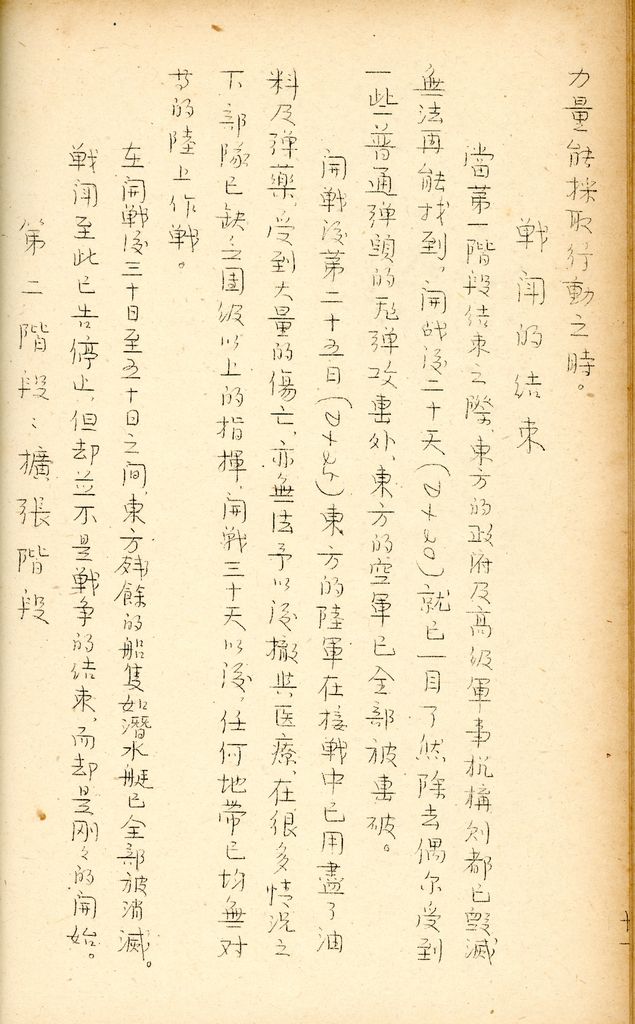 力量能採取行動之時。
戰鬪的结束
當第一階段结束之際、東方的政府及高级軍事机構则都已毀滅
無法再能找到、開战後二十天(D+20)就已一目了然除去偶尔受到
一些普通弹頭的飛弹攻擊外、東方的空軍已全部被擊破。
開戰後第二十五日(D+25)東方的陸軍在接戰中已用盡了油
料及弹藥、受到大量的傷亡、亦無法予以後撤與医療、在很多情况之
下部隊已缺乏团级以上的指揮、開戰三十天以後、任何地带已均無对
等的陸上作戰。
在開戰後三十日至五十日之间、東方残餘的船隻如潛水艇已全部被消滅。
戰鬪至此已告停止、但却並不是戰争的结束、而却是刚々的開始。
第二階段：擴張階段
十一